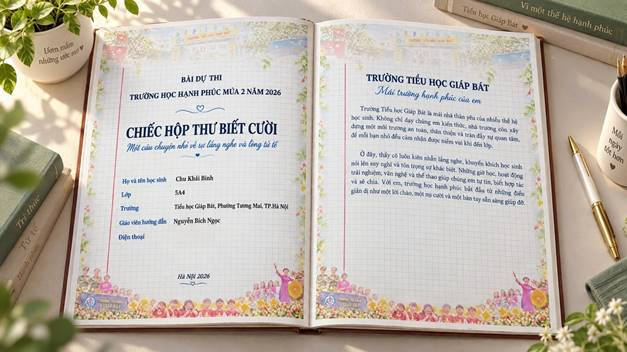 Ươm mầm
những ước mơ
BÀI DỰ THI
TRƯỜNG HỌC HẠNH PHÚC MÙA 2 NĂM 2026
CHIẾC HỘP THƯ BIẾT CƯỜI
Một câu chuyện nhỏ về sự lắng nghe và lòng tử tế
Họ và tên học sinh Chu Khải Bình
Lớp 5A4
Trường Tiểu học Giáp Bát, Phường Tương Mai, TP.Hà Nội
Giáo viên hướng dẫn Nguyễn Bích Ngọc
Điện thoại
Hà Nội 2026
TRƯỜNG TIỂU HỌC GIÁP BÁT
Mái trường hạnh phúc của em
Trường Tiểu học Giáp Bát là mái nhà thân yêu của nhiều thế hệ
học sinh. Không chỉ dạy chúng em kiến thức, nhà trường còn xây
dựng một môi trường an toàn, thân thiện và tràn đầy sự quan tâm,
để mỗi bạn nhỏ đều cảm nhận được niềm vui khi đến lớp.
Ở đây, thầy cô luôn kiên nhẫn lắng nghe, khuyến khích học sinh
nói lên suy nghĩ và tôn trọng sự khác biệt. Những giờ học, hoạt động
trải nghiệm, văn nghệ và thể thao giúp chúng em tự tin, biết hợp tác
và sẻ chia. Với em, trường học hạnh phúc bắt đầu từ những điều
giản dị như một lời chào, một nụ cười và một bàn tay sẵn sàng giúp đỡ.
Vì một thế hệ hạnh phúc
Tiểu học Giáp Bát
Mỗi
ngày
tốt hơn
Tri thức
Tử tế